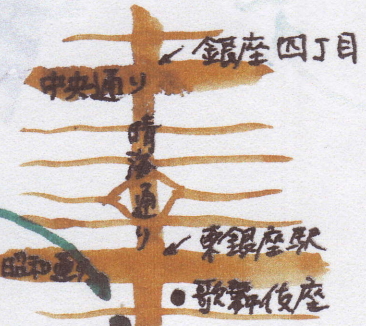 銀座四丁目
中央通り
晴海通り
東銀座駅
昭和通り
歌舞伎座